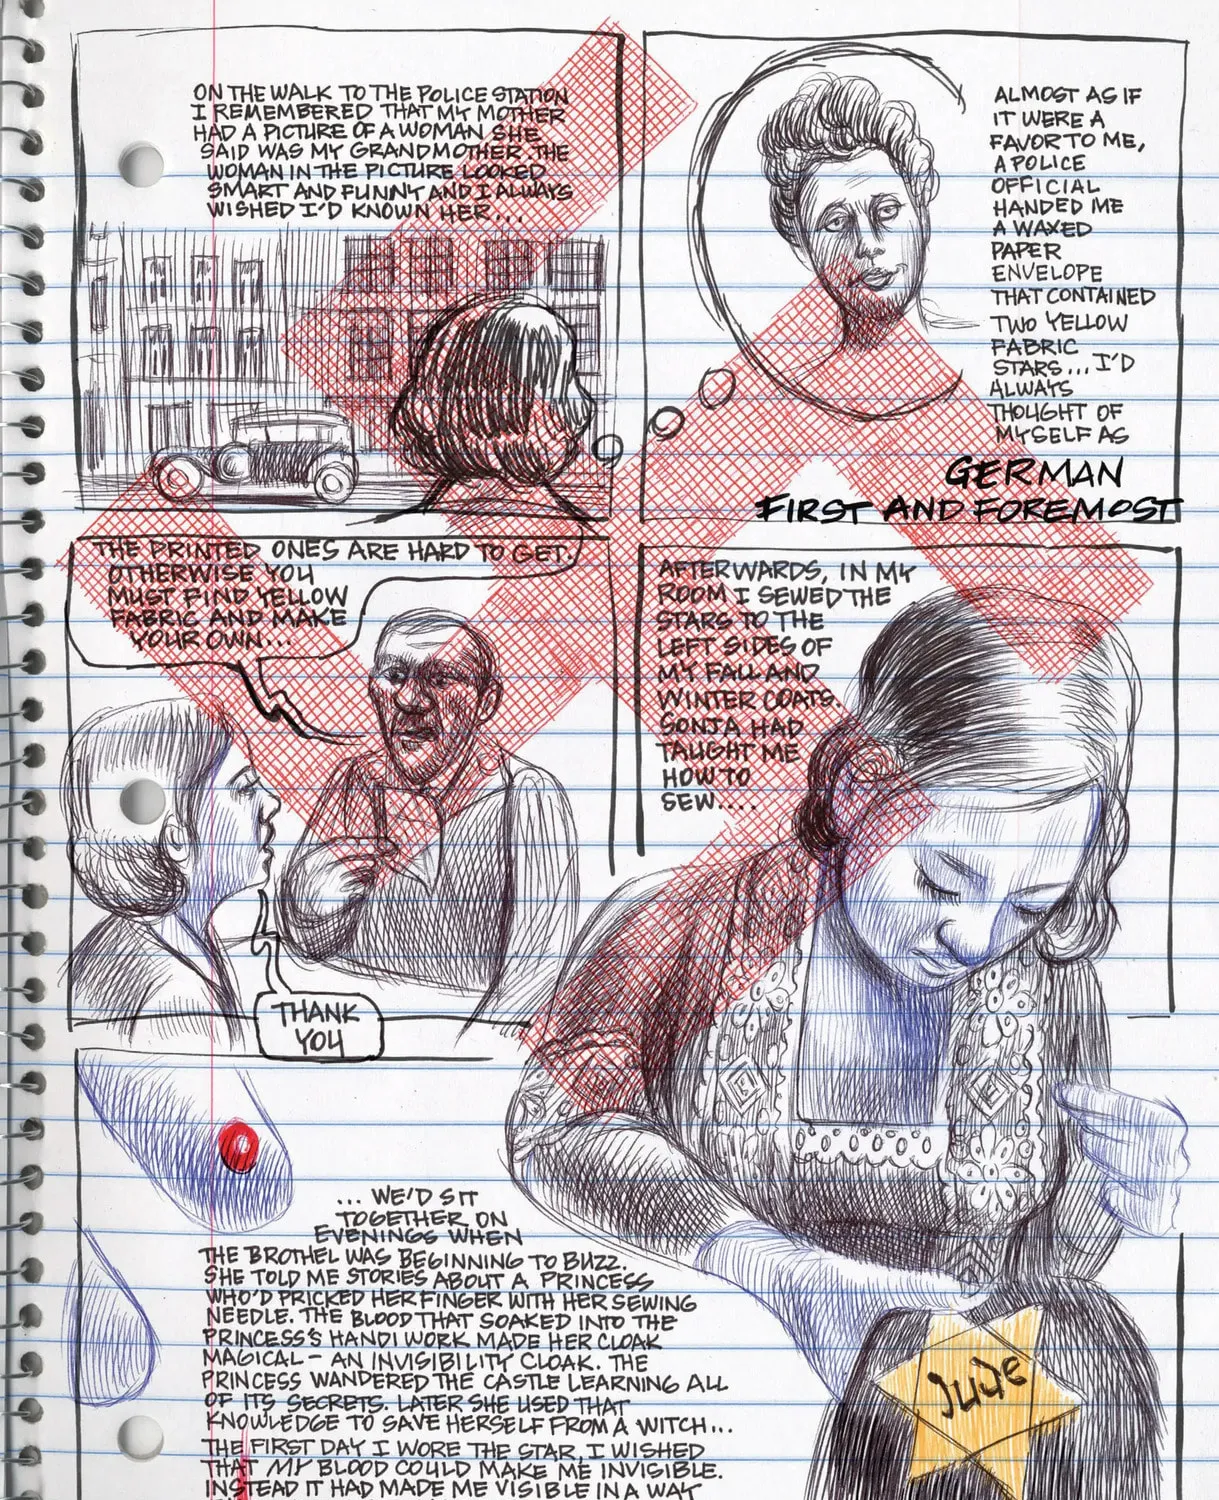 ON THE WALK TO THE POLICE STATION
I REMEMBERED THAT MY MOTHER
HAD A PICTURE OF A WOMAN SHE
SAID WAS MY GRANDMOTHER. THE
WOMAN IN THE PICTURE LOOKED
SMART AND FUNNY AND I ALWAYS
WISHED I'D KNOWN HER...
ALMOST AS IF
IT WERE A
FAVOR TO ME,
A POLICE
OFFICIAL
HANDED ME
A WAXED
PAPER
ENVELOPE
THAT CONTAINED
TWO YELLOW
FABRIC
STARS... I'D
ALWAYS
THOUGHT OF
MYSELF AS
GERMAN
FIRST AND FOREMOST
THE PRINTED ONES ARE HARD TO GET.
OTHERWISE YOU
MUST FIND YELLOW
FABRIC AND MAKE
YOUR OWN...
THANK
YOU
AFTERWARDS, IN MY
ROOM I SEWED THE
STARS TO THE
LEFT SIDES OF
MY FALL AND
WINTER COATS.
SONJA HAD
TAUGHT ME
HOW TO
SEW....
... WE'D SIT
TOGETHER ON
EVENINGS WHEN
THE BROTHEL WAS BEGINNING TO BUZZ.
SHE TOLD ME STORIES ABOUT A PRINCESS
WHO'D PRICKED HER FINGER WITH HER SEWING
NEEDLE. THE BLOOD THAT SOAKED INTO THE
PRINCESS'S HANDIWORK MADE HER CLOAK
MAGICAL - AN INVISIBILITY CLOAK. THE
PRINCESS WANDERED THE CASTLE LEARNING ALL
OF ITS SECRETS. LATER SHE USED THAT
KNOWLEDGE TO SAVE HERSELF FROM A WITCH...
THE FIRST DAY I WORE THE STAR, I WISHED
THAT MY BLOOD COULD MAKE ME INVISIBLE.
INSTEAD IT HAD MADE ME VISIBLE IN A WAY
Jude